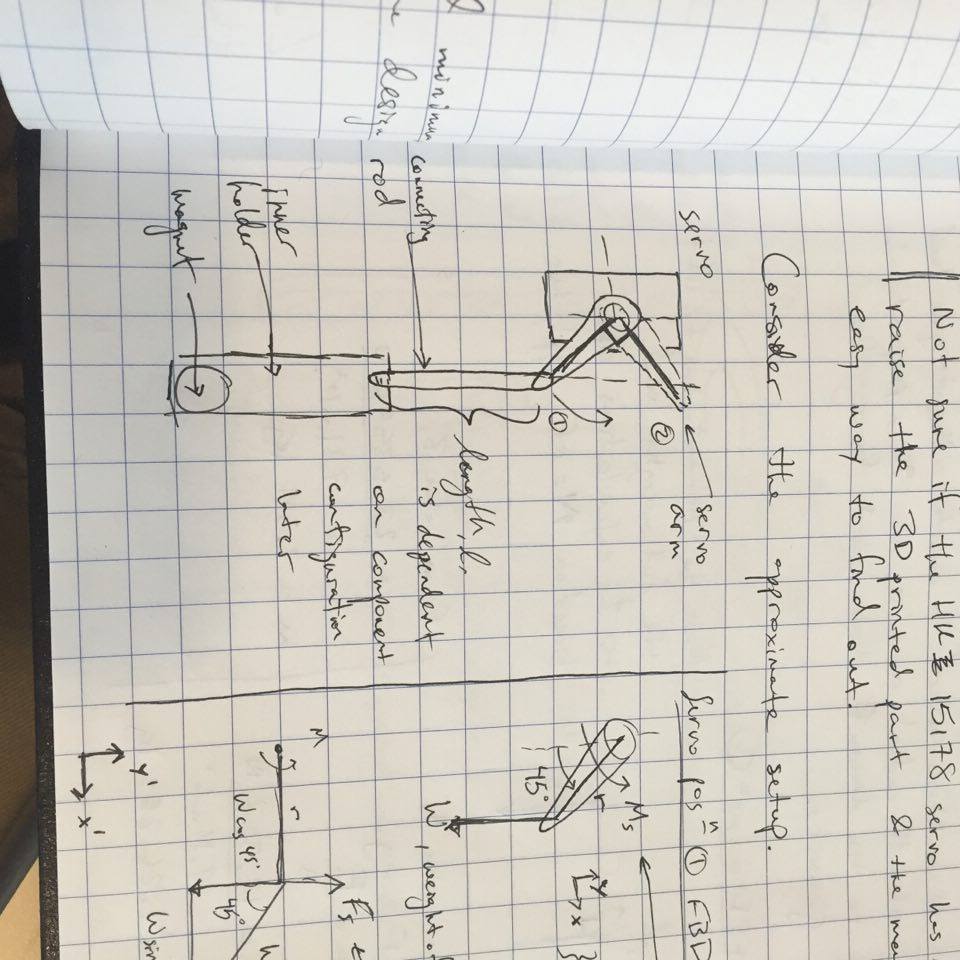 minimum
design
Not sure if the HK 15178 servo has
raise the 3D printed part & the
easy way to find out.
Consider the approximate setup.
servo
servo
arm
①
②
connecting
rod
inner
holder
magnet
length, l,
is dependent
on component
configuration
later
Servo posⁿ ① FBD
Ms
r
45°
W, weight of
y
x
M
r
Fs
W cos 45°
45°
W sin
y'
x'